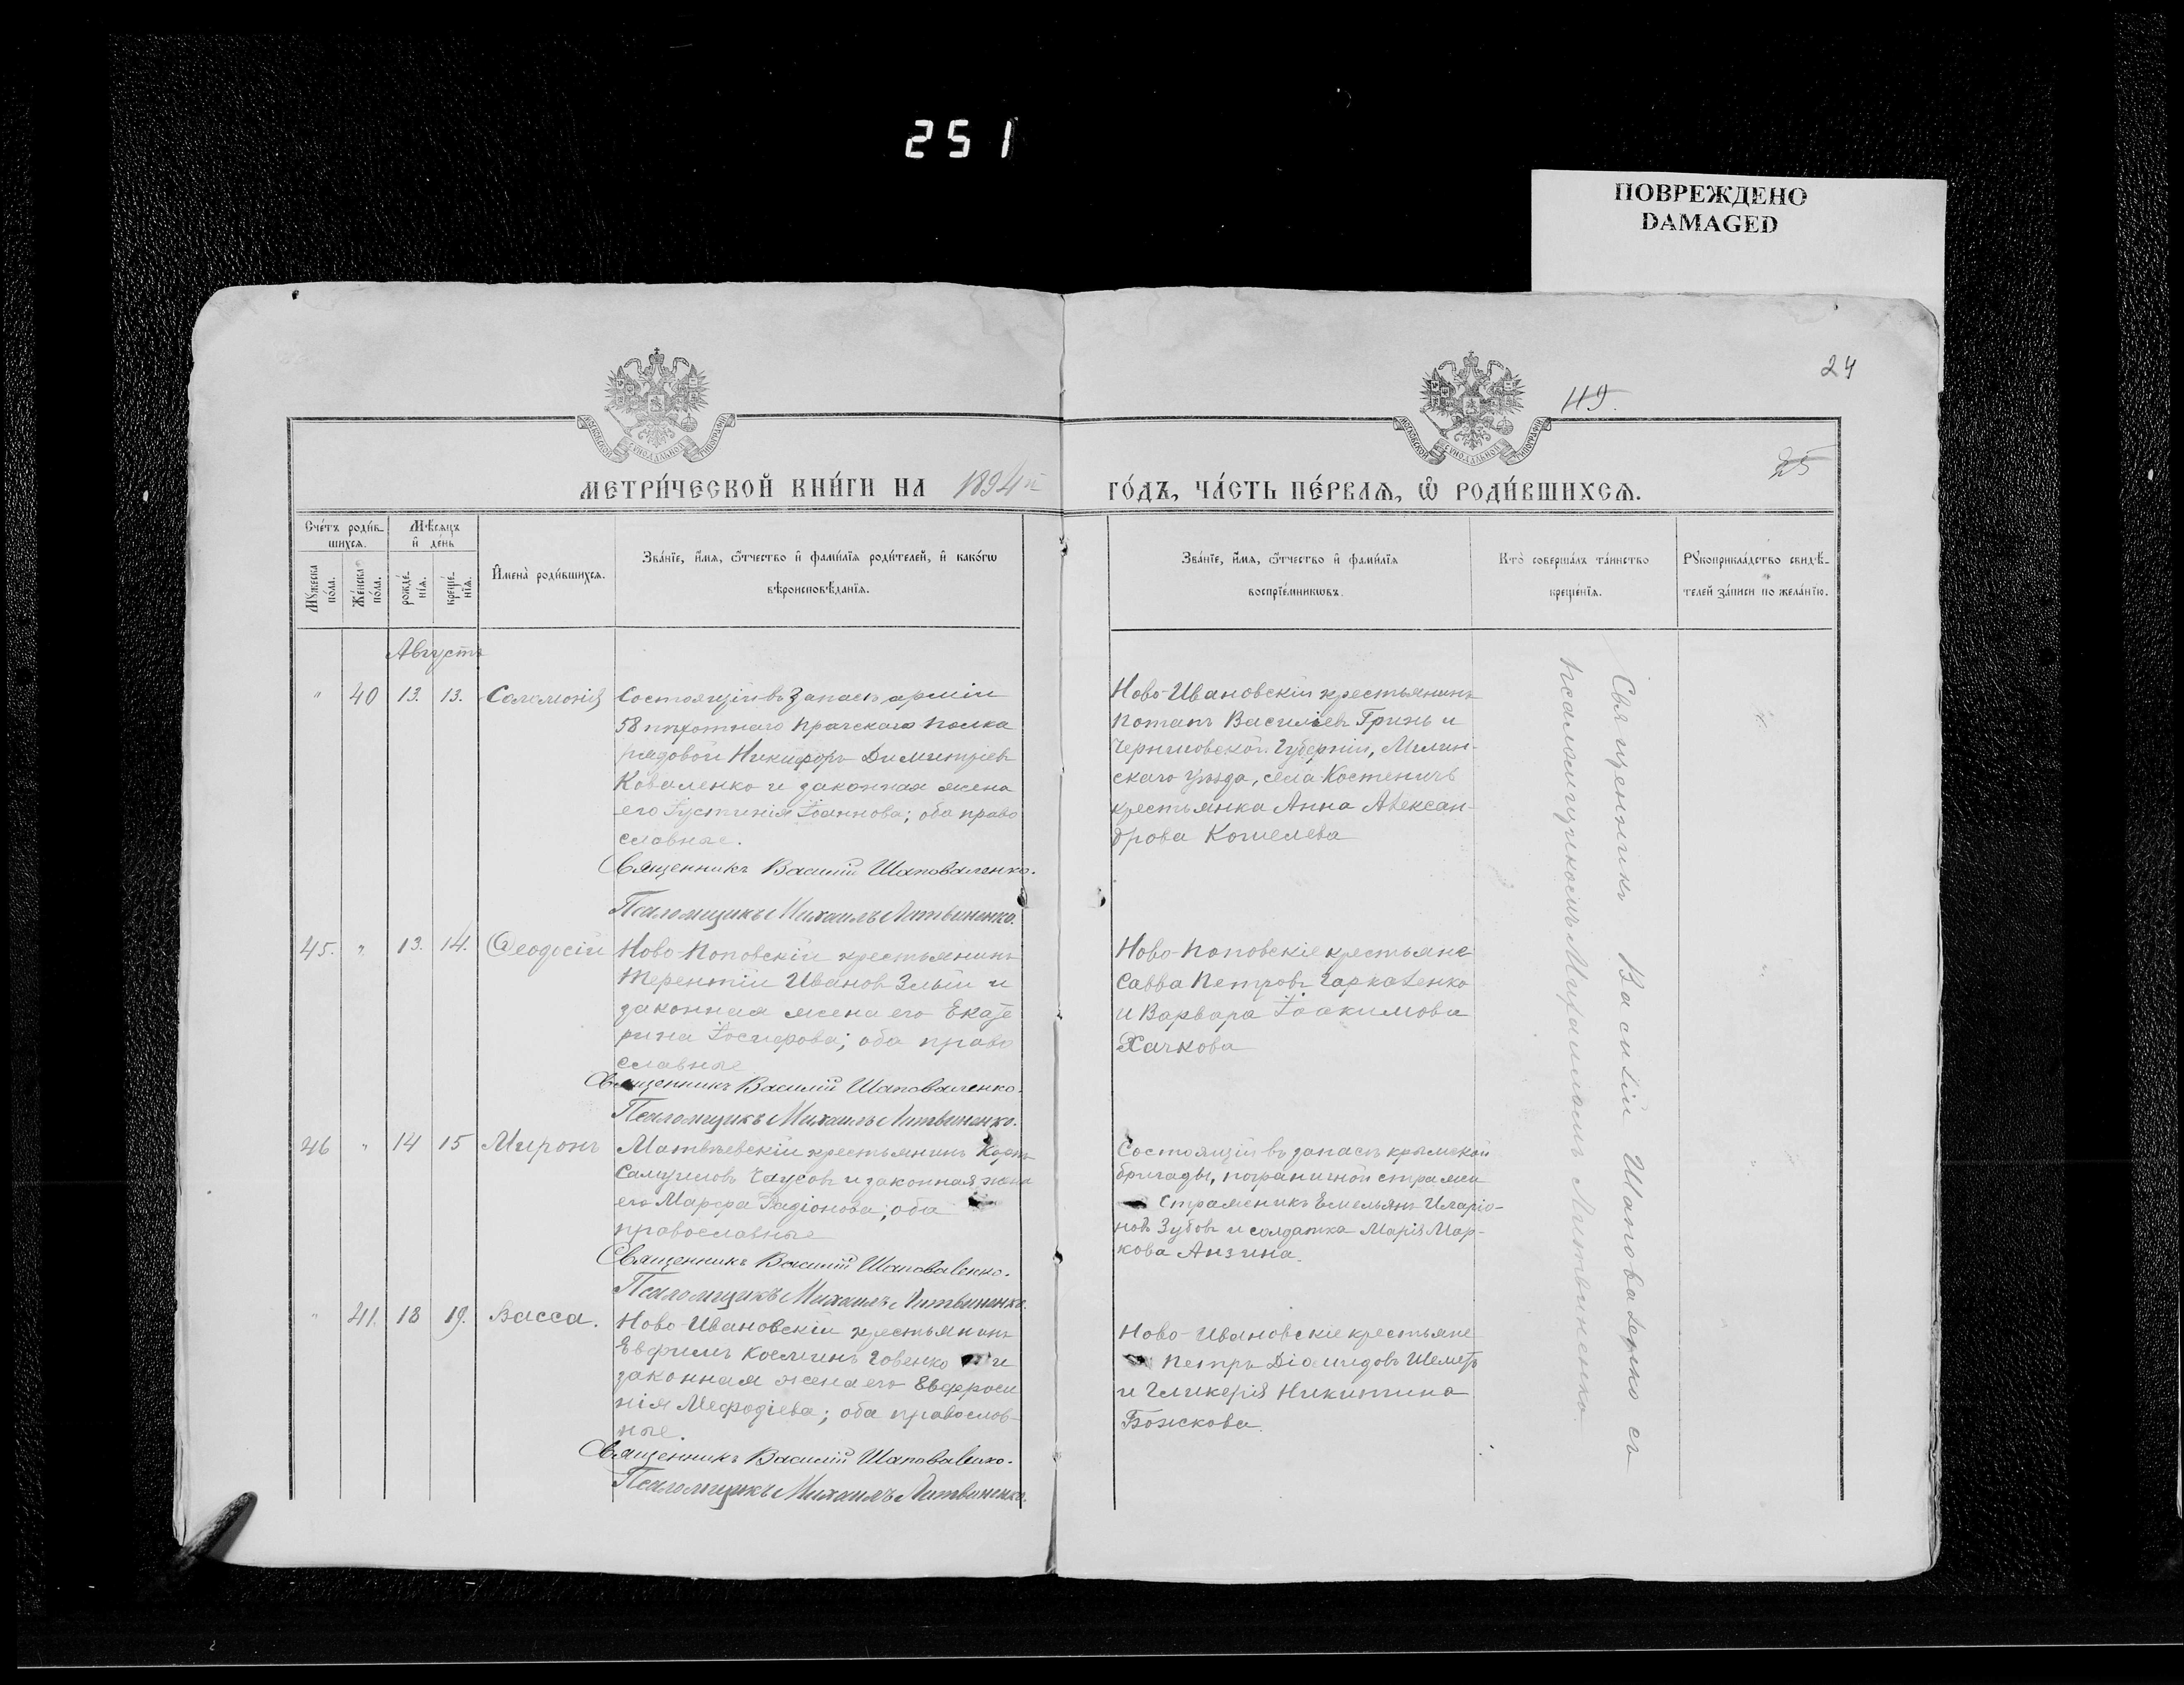 251
ПОВРЕЖДЕНО
DAMAGED
24
119.
25
МОСКОВСКОЙ СѴНОДАЛЬНОЙ ТИПОГРАФІИ
МОСКОВСКОЙ СѴНОДАЛЬНОЙ ТИПОГРАФІИ
МЕТРИ́ЧЕСКОЙ КНИ́ГИ НА 1894й ГО́ДЪ, ЧА́СТЬ ПЕ́РВАѦ, Ѽ РОДИ́ВШИХСѦ.
Сче́тъ роди́в-
шихсѧ.
Мѣсѧцъ
и де́нь
Мꙋ́жеска
по́ла.
Же́нска
по́ла.
рожде́-
нїѧ.
креще́-
нїѧ.
Имена̀ роди́вшихсѧ.
Зва́нїе, и́мѧ, ѻ́тчество и фами́лїѧ роди́телей, и како́гѡ
вѣроисповѣ́данїѧ.
Зва́нїе, и́мѧ, ѻ́тчество и фами́лїѧ
воспрїе́мникѡвъ.
Кто̀ соверша́лъ та́инство
креще́нїѧ.
Рꙋкоприкла́дство свидѣ́-
телей за́писи по жела́нїю.
Августъ
" 40 13. 13. Соломонія
Состоящій въ запасѣ арміи
58 пѣхотнаго Прагскаго полка
рядовой Никифоръ Димитріевъ
Коваленко и законная жена
его Іустинія Іоаннова; оба право
славные.
Священникъ Василій Шаповаленко.
Псаломщикъ Михаилъ Литвиненко.
Ново-Ивановскій крестьянинъ
Потапъ Васильевъ Гринь и
Черниговской Губерніи, Мглин-
скаго уѣзда, села Костеничъ
крестьянка Анна Алексан-
дрова Кошелева
Священникъ Василій Шаповаленко съ
псаломщикомъ Михаиломъ Литвиненко
45. " 13. 14. Ѳеодосій
Ново-Поповскій крестьянинъ
Терентій Ивановъ Злый и
законная жена его Екате
рина Іосифова; оба право
славные
Священникъ Василій Шаповаленко.
Псаломщикъ Михаилъ Литвиненко.
Ново-Поповскіе крестьяне
Савва Петровъ Гаркавенко
и Варвара Іоакимова
Хачкова
46 " 14 15 Миронъ
Матвѣевскій крестьянинъ Карпъ
Самуиловъ Чаусовъ и законная жена
его Марфа Радіонова; оба
православные
Священникъ Василій Шаповаленко.
Псаломщикъ Михаилъ Литвиненко.
Состоящій въ запасѣ крымской
бригады, пограничной стражи
Стражникъ Емельянъ Иларіо-
новъ Зубовъ и солдатка Марія Мар-
кова Анзина.
" 41. 18 19. Васса.
Ново-Ивановскій крестьянинъ
Евфимъ Косминъ Говенко и
законная жена его Евфроси
нія Мефодіева; оба православ-
ные.
Священникъ Василій Шаповаленко.
Псаломщикъ Михаилъ Литвиненко.
Ново-Ивановскіе крестьяне
Петръ Діомидовъ Шеметъ
и Гликерія Никитина
Божкова.